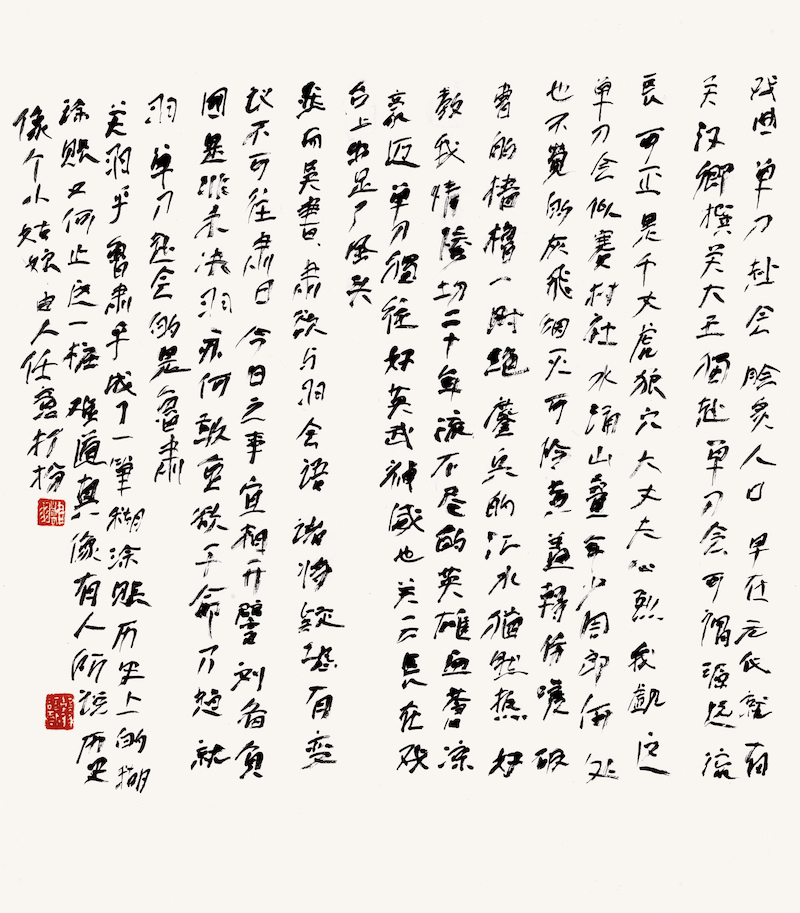 戏曲单刀赴会脍炙人口 早在元代就有
关汉卿撰关大王独赴单刀会可谓源远流
长 可正是千丈虎狼穴大丈夫心烈我觑这
单刀会似赛村社 水涌山叠年少周郎何处
也不觉的灰飞烟灭可怜黄盖转伤嗟破
曹的樯橹一时绝鏖兵的江水犹然热好
教我情惨切二十年流不尽的英雄血苍凉
豪迈单刀独往好英武神威也关云长在戏
台上出足了风头
然而吴书、肃欲与羽会语 诸将疑恐有变
议不可往肃曰 今日之事宜相开譬刘备负
国是非未决羽亦何敢重欲干命乃趋就
羽 单刀赴会的是鲁肃
关羽乎鲁肃乎成了一笔糊涂账历史上的糊
涂账又何止这一桩难道真像有人所说历史
像个小姑娘由人任意打扮